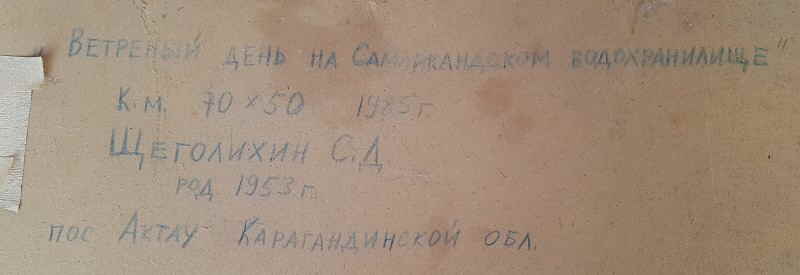 "Ветреный день на Самаркандском водохранилище"
К.м. 70×50 1985г.
Щеголихин С.Д
род 1953г.
пос Актау Карагандинской обл.